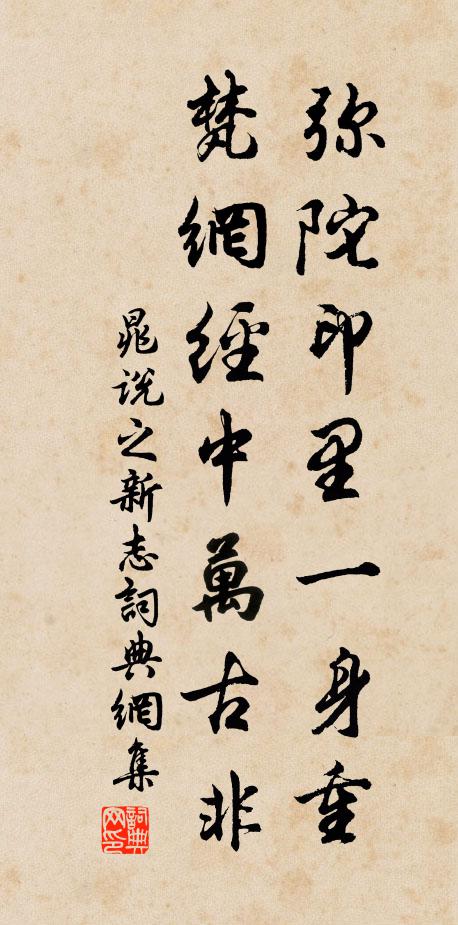 弥陀印里一身重
梵網經中萬古非
晁說之新志詞典網集
詞典网印